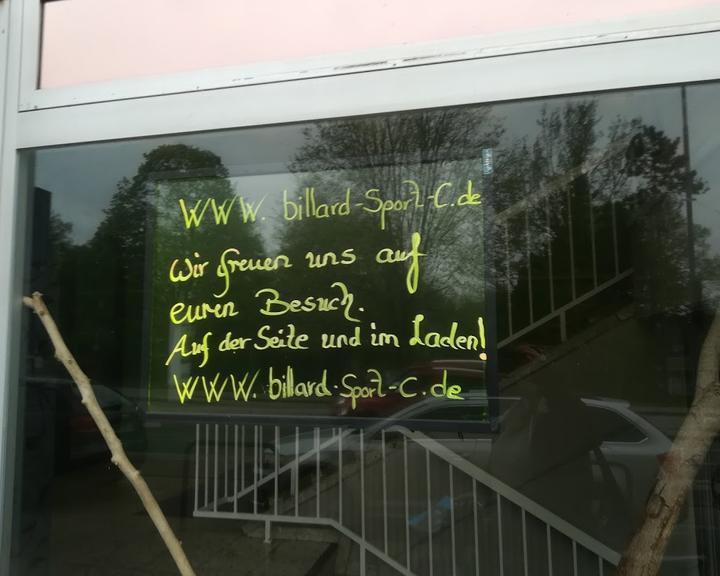 WWW. billard-Sport-C.de
Wir freuen uns auf
euren Besuch.
Auf der Seite und im Laden!
WWW. billard-Sport-C.de